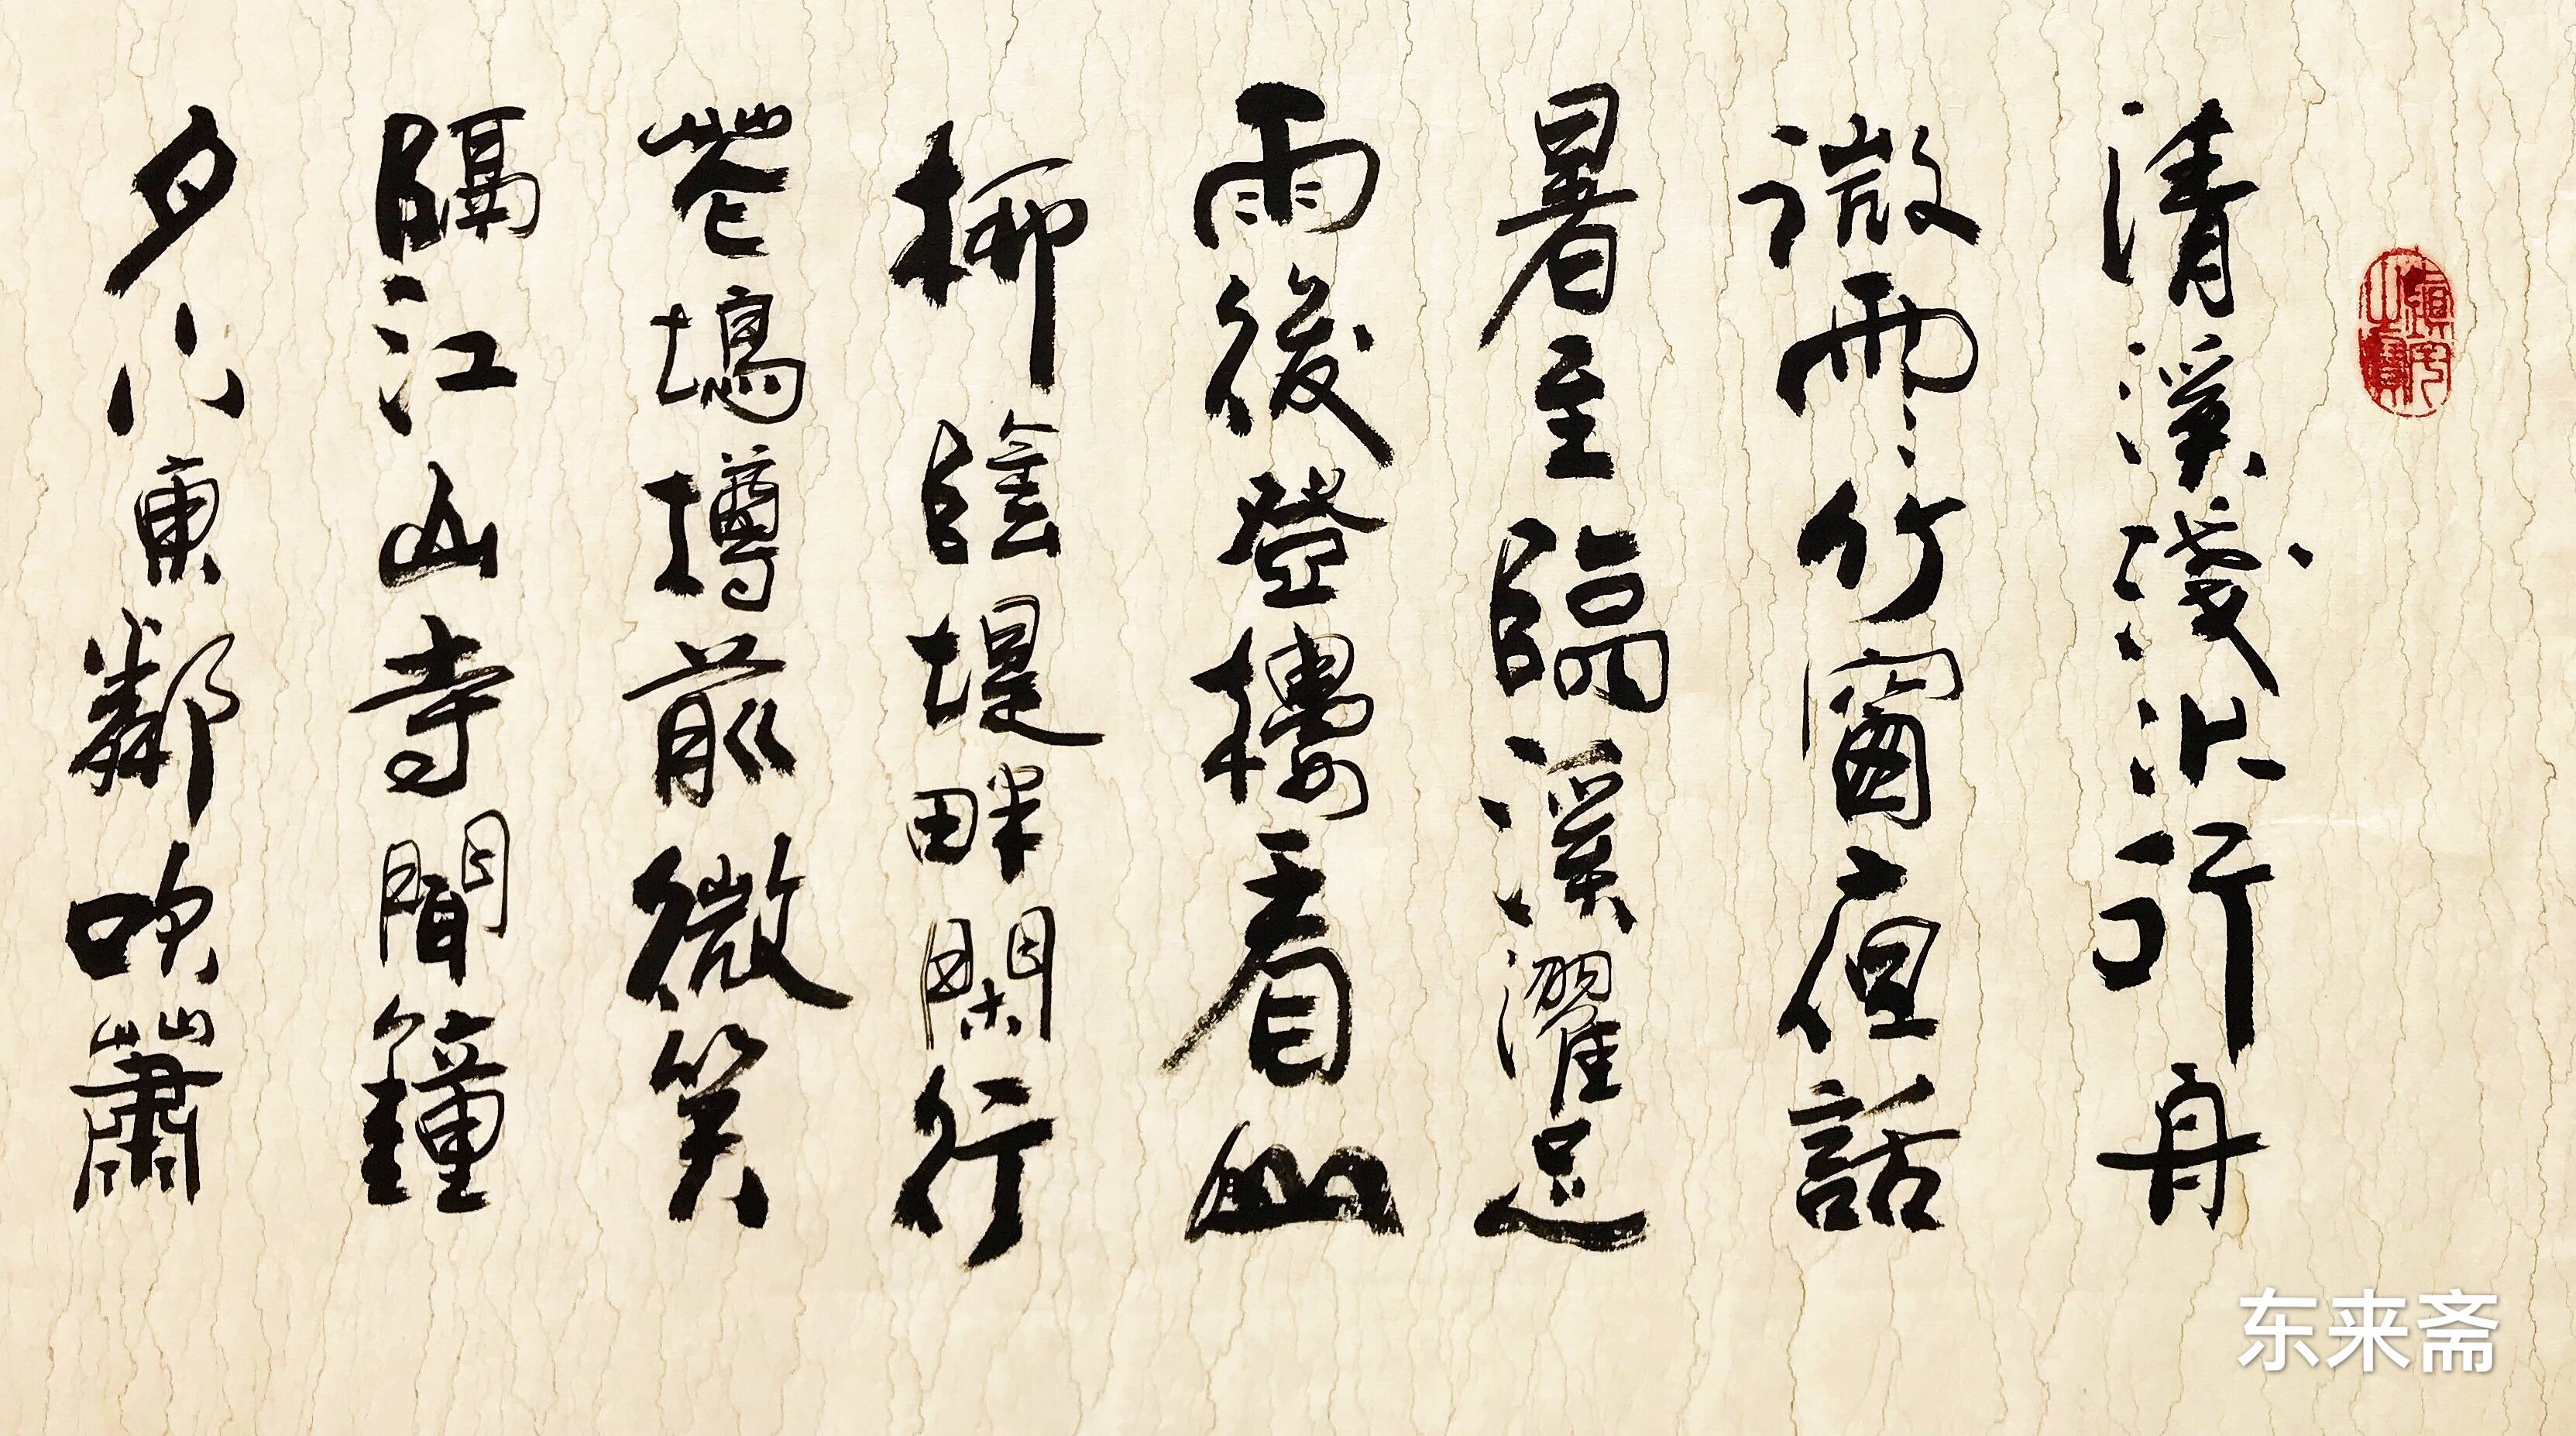 清溪淺水行舟
微雨竹窗夜話
暑至臨溪濯足
雨後登樓看山
柳陰堤畔閑行
花塢樽前微笑
隔江山寺聞鐘
月下東鄰吹蕭
东来斋